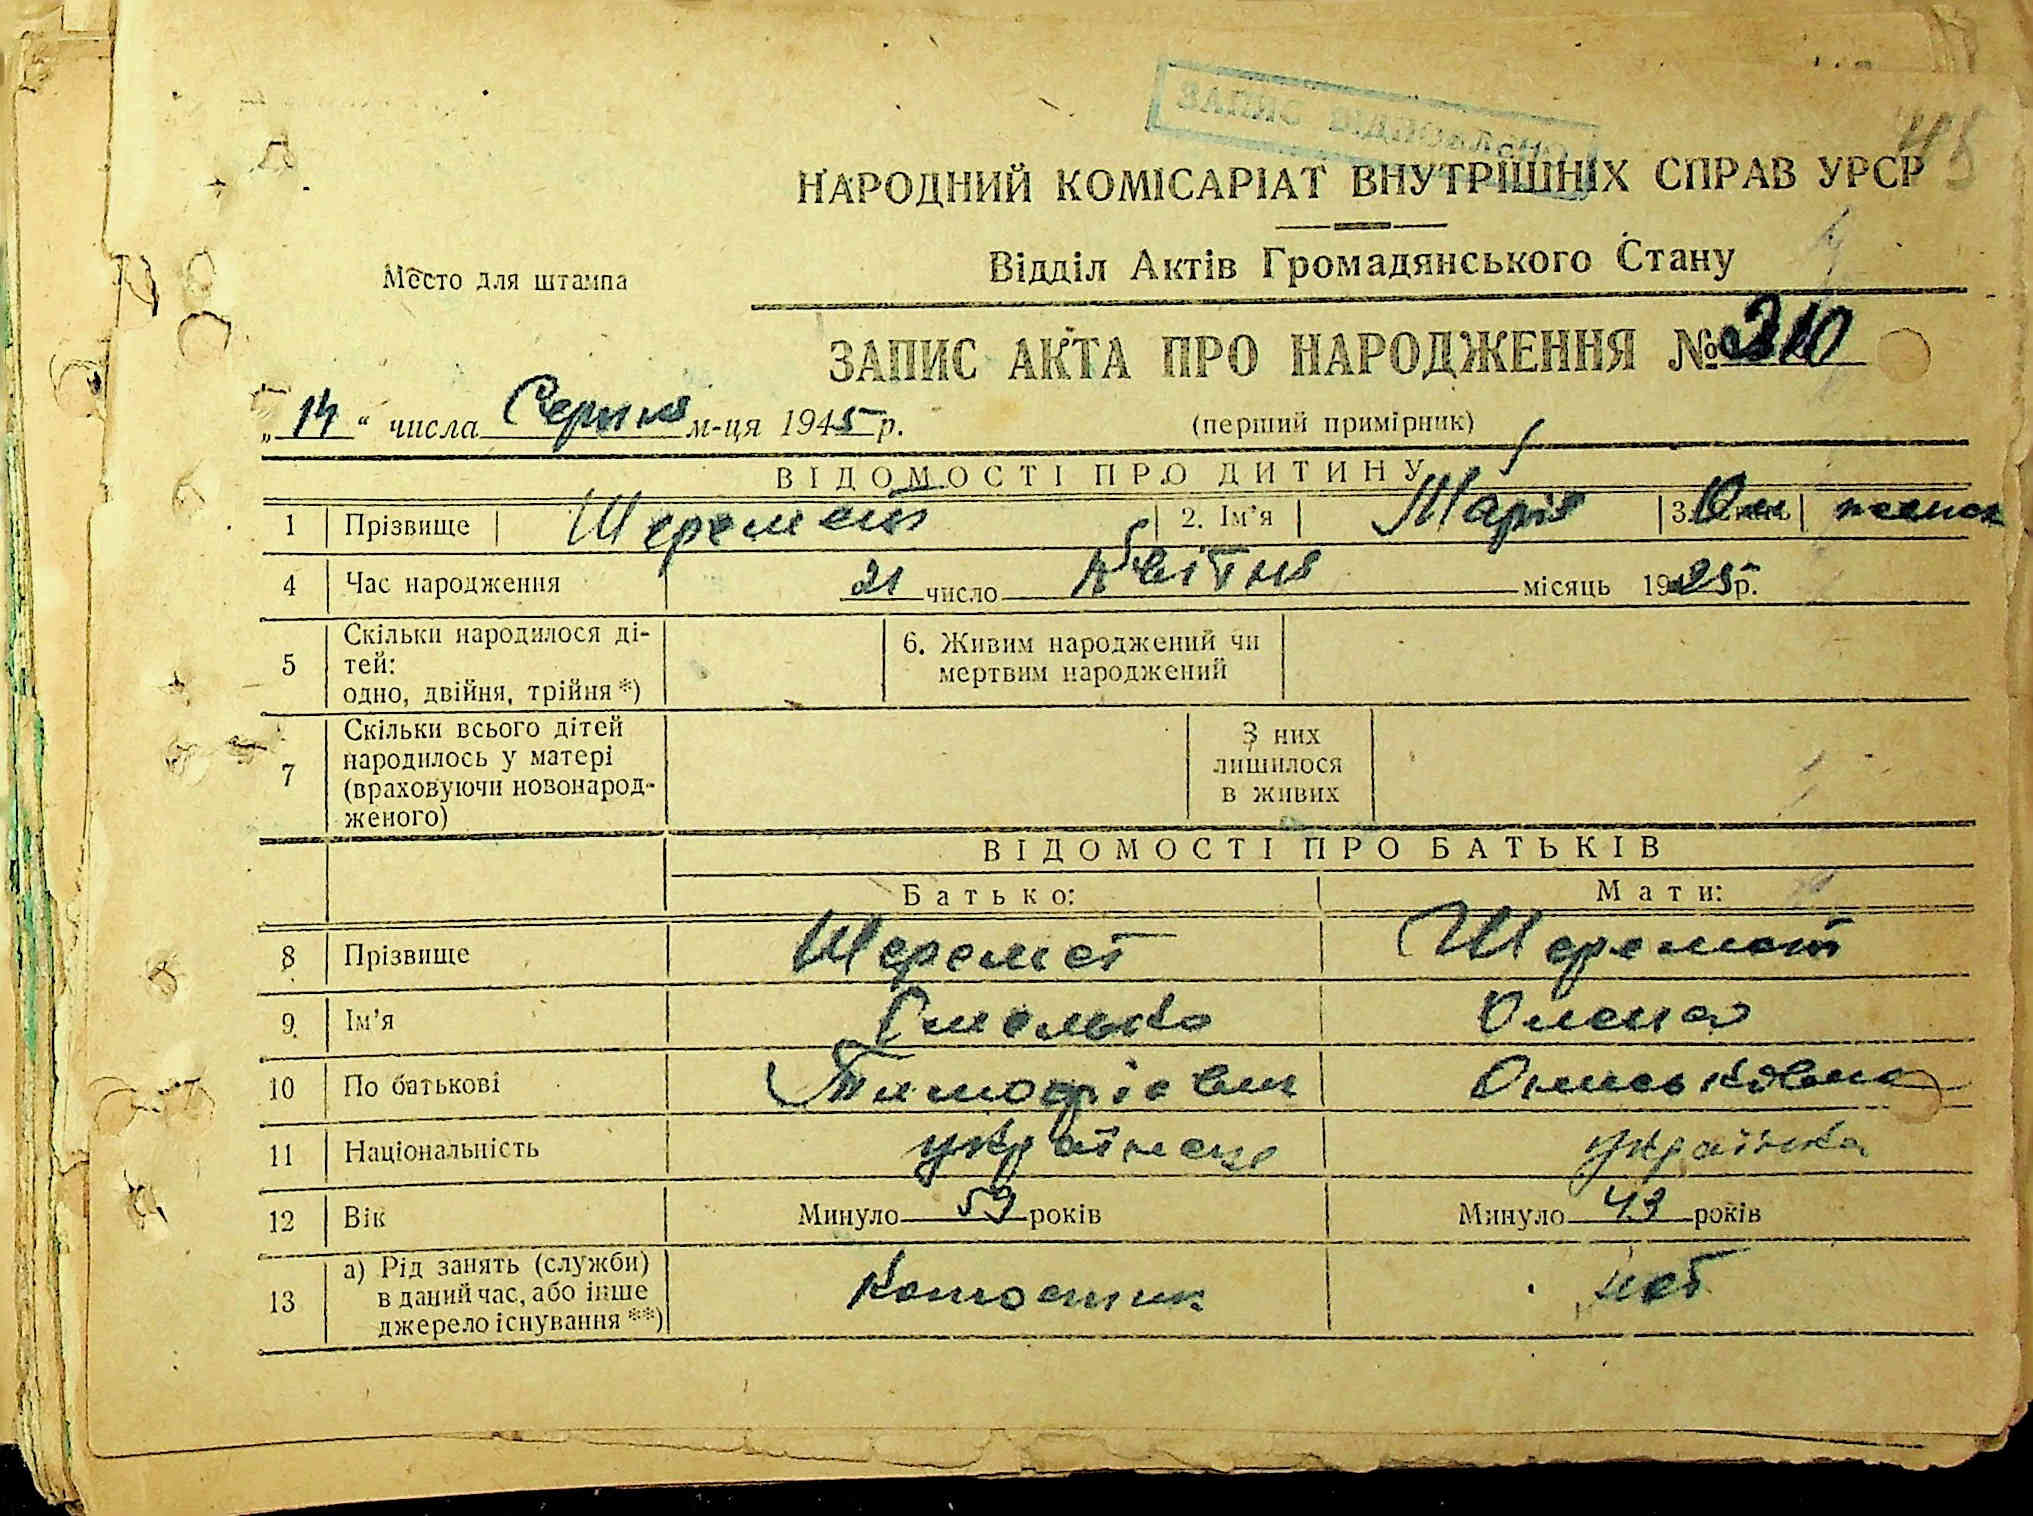 45
ЗАПИС ВІДНОВЛЕНО
НАРОДНИЙ КОМІСАРІАТ ВНУТРІШНІХ СПРАВ УРСР
Відділ Актів Громадянського Стану
Место для штампа
ЗАПИС АКТА ПРО НАРОДЖЕННЯ № 310
„14“ числа Серпня м-ця 1945 р. (перший примірник)
ВІДОМОСТІ ПРО ДИТИНУ
1 Прізвище Шеремет 2. Ім’я Марія 3. Ом
4 Час народження 21 число Квітня місяць 1925 р.
5 Скільки народилося ді-
тей:
одно, двійня, трійня *)
6. Живим народжений чи
мертвим народжений
7 Скільки всього дітей
народилось у матері
(враховуючи новонарод-
женого)
З них
лишилося
в живих
ВІДОМОСТІ ПРО БАТЬКІВ
Батько: Мати:
8 Прізвище Шеремет Шеремет
9 Ім’я Омелько Олена
10 По батькові Тимофієвич
11 Національність українець українка
12 Вік Минуло 59 років Минуло 43 років
13 а) Рід занять (служби)
в даний час, або інше
джерело існування **)